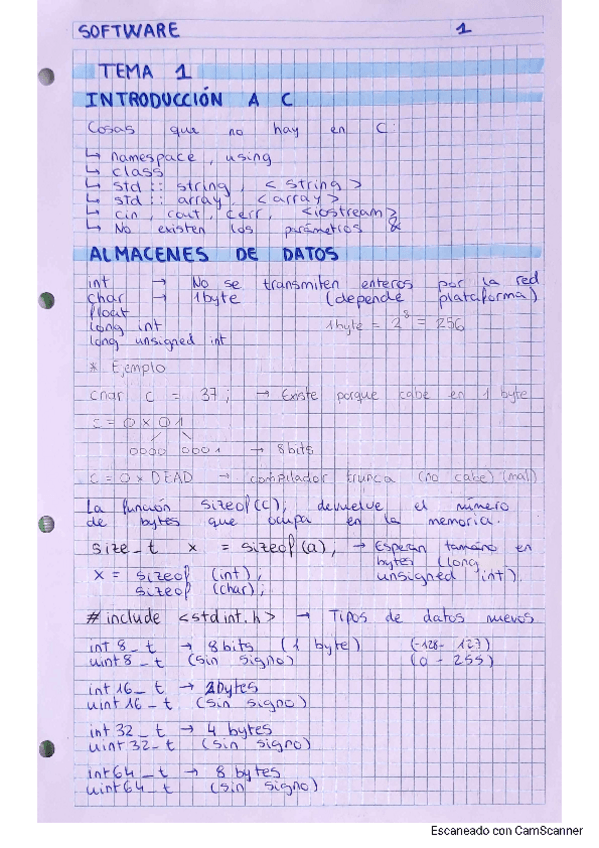 SOFTWARE 1
TEMA 1
INTRODUCCIÓN A C
Cosas que no hay en C:
↳ namespace, using
↳ class
↳ std :: string, <string>
↳ std :: array, <array>
↳ cin, cout, cerr, <iostream>
↳ No existen los parámetros &
ALMACENES DE DATOS
int → No se transmiten enteros por la red
char → 1 byte (depende plataforma)
float
long int 1 byte = 2^8 = 256
long unsigned int
* Ejemplo
char c = 37; → Existe porque cabe en 1 byte
c = 0x01
0000 0001 → 8 bits
c = 0xDEAD → compilador trunca (no cabe) (mal)
La función sizeof(c); devuelve el número
de bytes que ocupa en la memoria.
size_t x = sizeof(a); → Esperan tamaño en
bytes (long
x = sizeof (int); unsigned int).
sizeof (char);
#include <stdint.h> → Tipos de datos nuevos
int8_t → 8 bits (1 byte) (-128 - 127)
uint8_t (sin signo) (0 - 255)
int16_t → 2 bytes
uint16_t (sin signo)
int32_t → 4 bytes
uint32_t (sin signo)
int64_t → 8 bytes
uint64_t (sin signo)
Escaneado con CamScanner